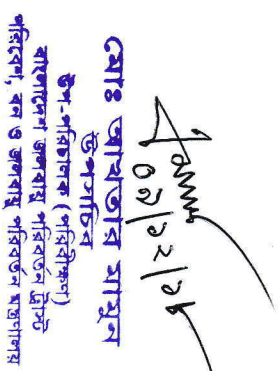 ০১/১২/১৫
মোঃ আখতার মামুন
উপসচিব
উপ-পরিচালক (পরিবীক্ষণ)
বাংলাদেশ জলবায়ু পরিবর্তন ট্রাস্ট
পরিবেশ, বন ও জলবায়ু পরিবর্তন মন্ত্রণালয়